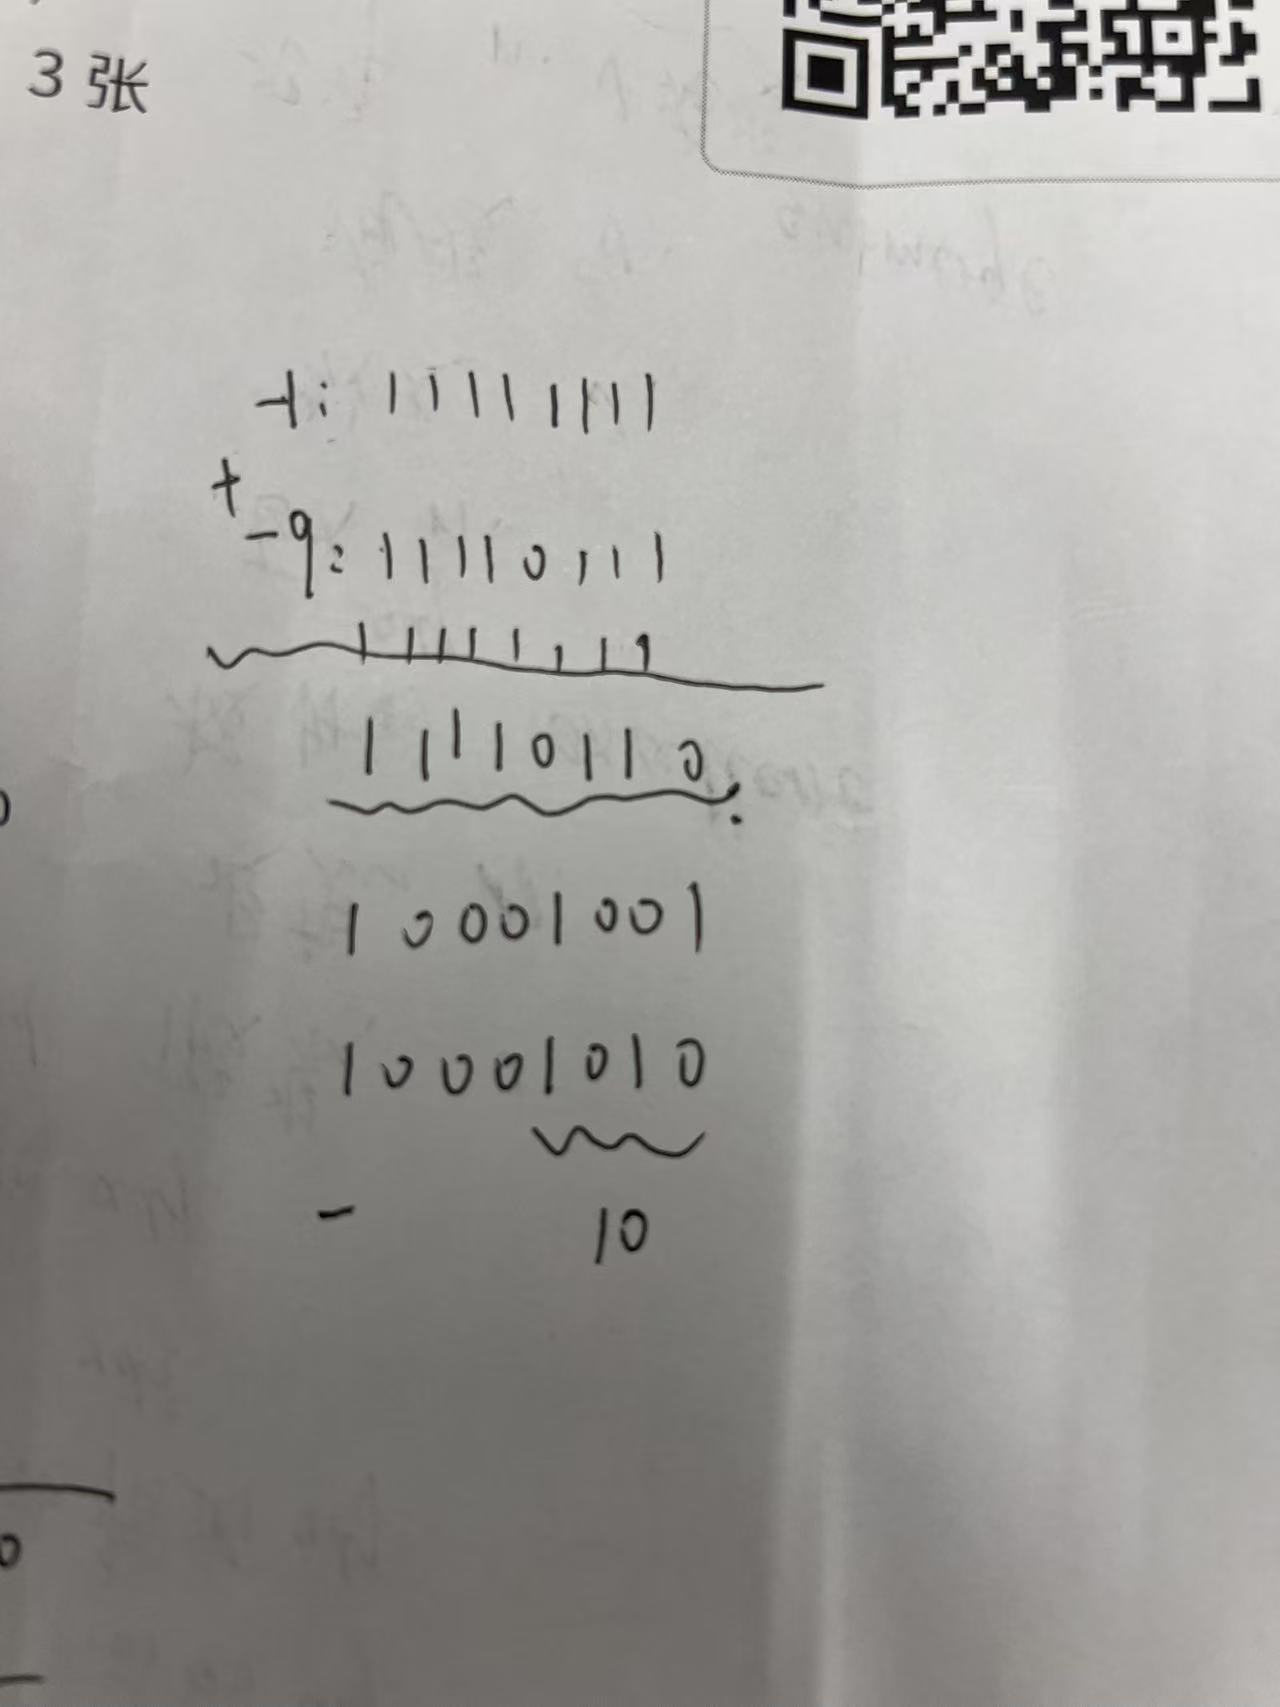 3 张
-1: 11111111
+
-9: 11110111
11111111
11110110
10001001
10001010
- 10
0